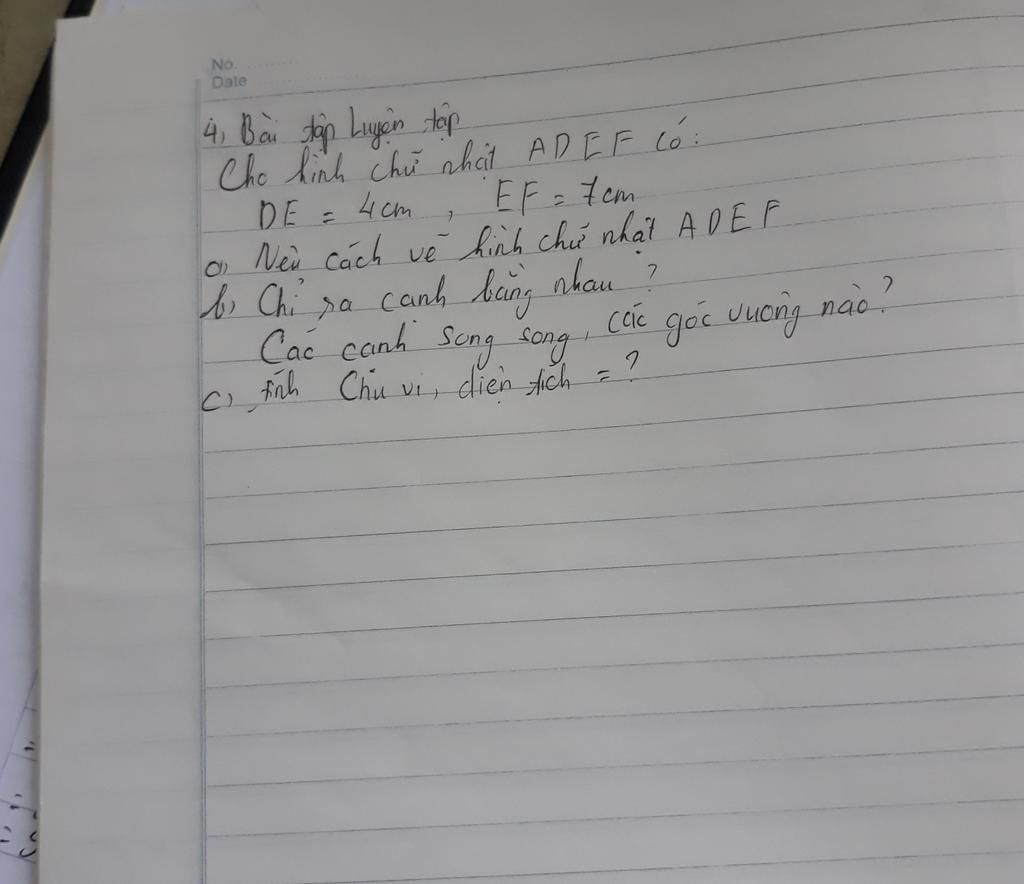 No.
Date
4, Bài tập Luyện tập
Cho hình chữ nhật ADEF có:
DE = 4cm, EF = 7cm
a, Nêu cách vẽ hình chữ nhật ADEF
b, Chỉ ra cạnh bằng nhau?
Các cạnh song song, các góc vuông nào?
c, tính Chu vi, diện tích = ?